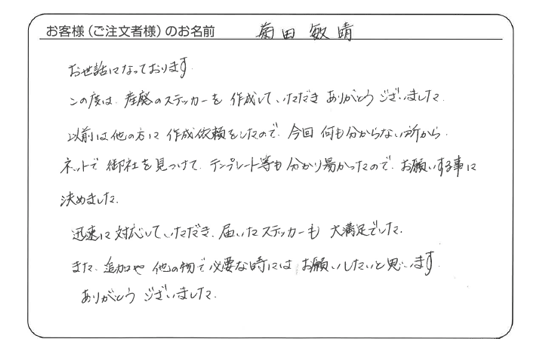 お客様（ご注文者様）のお名前 菊田 敏晴
お世話になっております
この度は、産廃のステッカーを作成して、いただきありがとうございました。
以前は他の方に作成依頼をしたので、今回何も分からない所から、
ネットで御社を見つけて、テンプレート等も分かり易かったので、お願いする事に
決めました。
迅速に対応していただき、届いたステッカーも大満足でした。
また、追加や他の物で必要な時にはお願いしたいと思います
ありがとうございました。